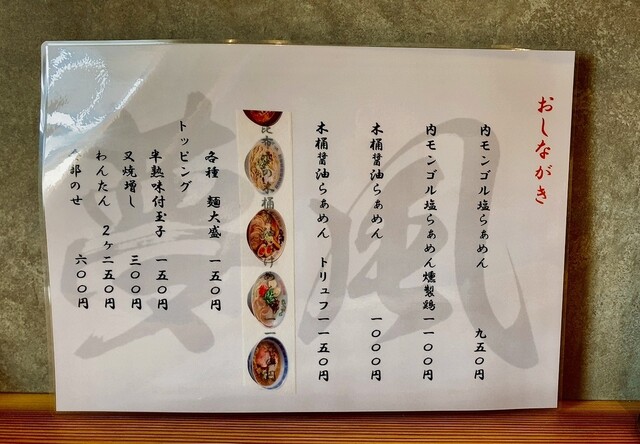 おしながき
内モンゴル塩らぁめん 九五〇円
内モンゴル塩らぁめん燻製鶏 一一〇〇円
木桶醤油らぁめん 一〇〇〇円
木桶醤油らぁめん トリュフ 一一五〇円
各種 麺大盛 一五〇円
トッピング
半熟味付玉子 一五〇円
叉焼増し 三〇〇円
わんたん 2ヶ 二五〇円
部のせ 六〇〇円
夢風